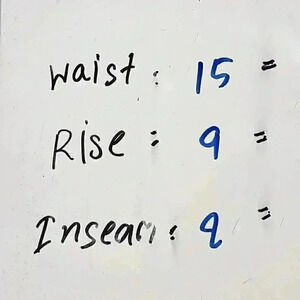 Waist: 15 "
Rise: 9 "
Inseam: 9 "